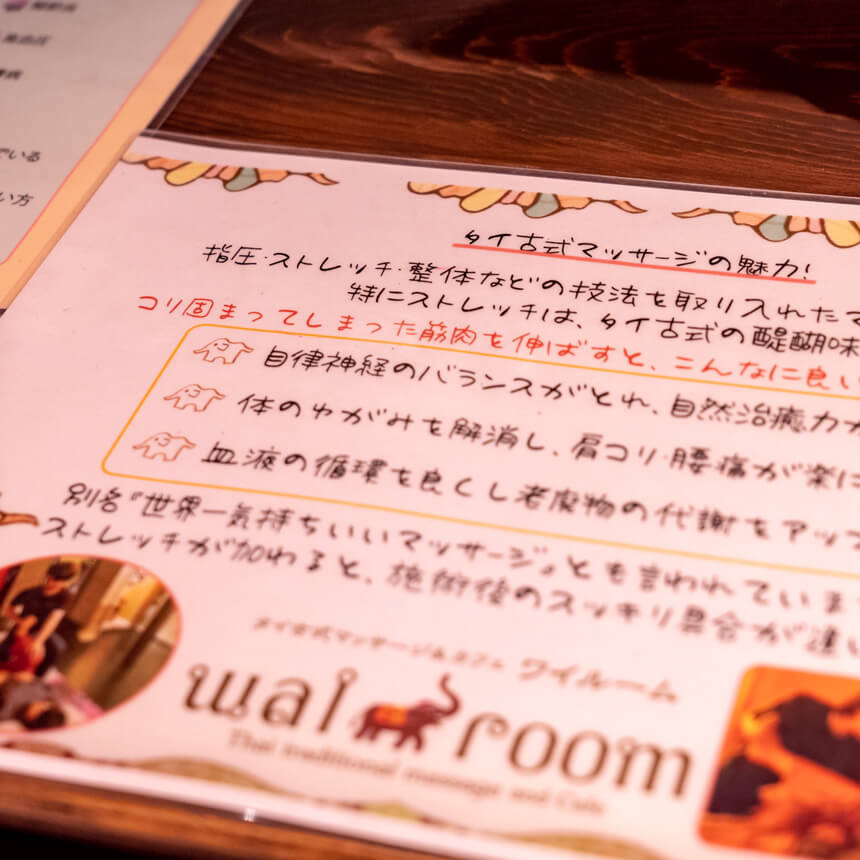 でいる
い方
タイ古式マッサージの魅力!
指圧・ストレッチ・整体などの技法を取り入れたマ
特にストレッチは、タイ古式の醍醐味
コリ固まってしまった筋肉を伸ばすと、こんなに良い
自律神経のバランスがとれ、自然治癒力が
体のゆがみを解消し、肩コリ・腰痛が楽に
血液の循環を良くし老廃物の代謝をアップ
別名『世界一気持ちいいマッサージ』とも言われていま
ストレッチが加わると、施術後のスッキリ具合が違い
タイ古式マッサージ&カフェ ワイルーム
wai room
Thai traditional massage and Cafe